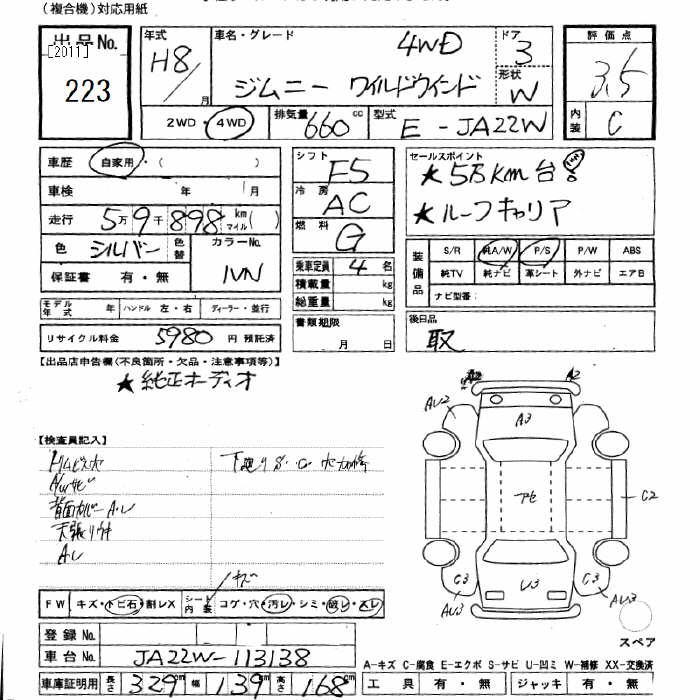 (複合機)対応用紙
出品No.
[2011]
223
年式 H8/ 月
車名・グレード 4WD
ジムニー ワイルドウインド
ドア 3
形状 W
評価点 3.5
内装 C
2WD・4WD
排気量 660 cc
型式 E-JA22W
車歴 自家用・( )
車検 年 月
走行 5万9千898 km マイル( )
色 シルバー 色替 カラーNo. 1VN
保証書 有・無
モデル年式 年 ハンドル 左・右 ディーラー・並行
リサイクル料金 5980 円 預託済
シフト F5
冷房 AC
燃料 G
乗車定員 4 名
積載量 kg
総重量 kg
書類期限
月 日
セールスポイント
★5万km台!
★ルーフキャリア
装備品
S/R 純A/W P/S P/W ABS
純TV 純ナビ 革シート 外ナビ エアB
ナビ型番:
後日品
取
【出品店申告欄(不良箇所・欠品・注意事項等)】
★純正オーディオ
【検査員記入】
背面カバーA.U
天張り
下廻りS.C
A2
AU2
A3
アセ
C2
C3
U3
C3
AU3
AU3
スペア
FW キズ・トビ石・割レX
シート内装 コゲ・穴・汚レ・シミ・破レ・スレ
登録No.
車台No. JA22W-113138
車庫証明用 長さ 329 cm 幅 139 cm 高さ 168 cm
A-キズ C-腐食 E-エクボ S-サビ U-凹ミ W-補修 XX-交換済
工具 有・無 ジャッキ 有・無